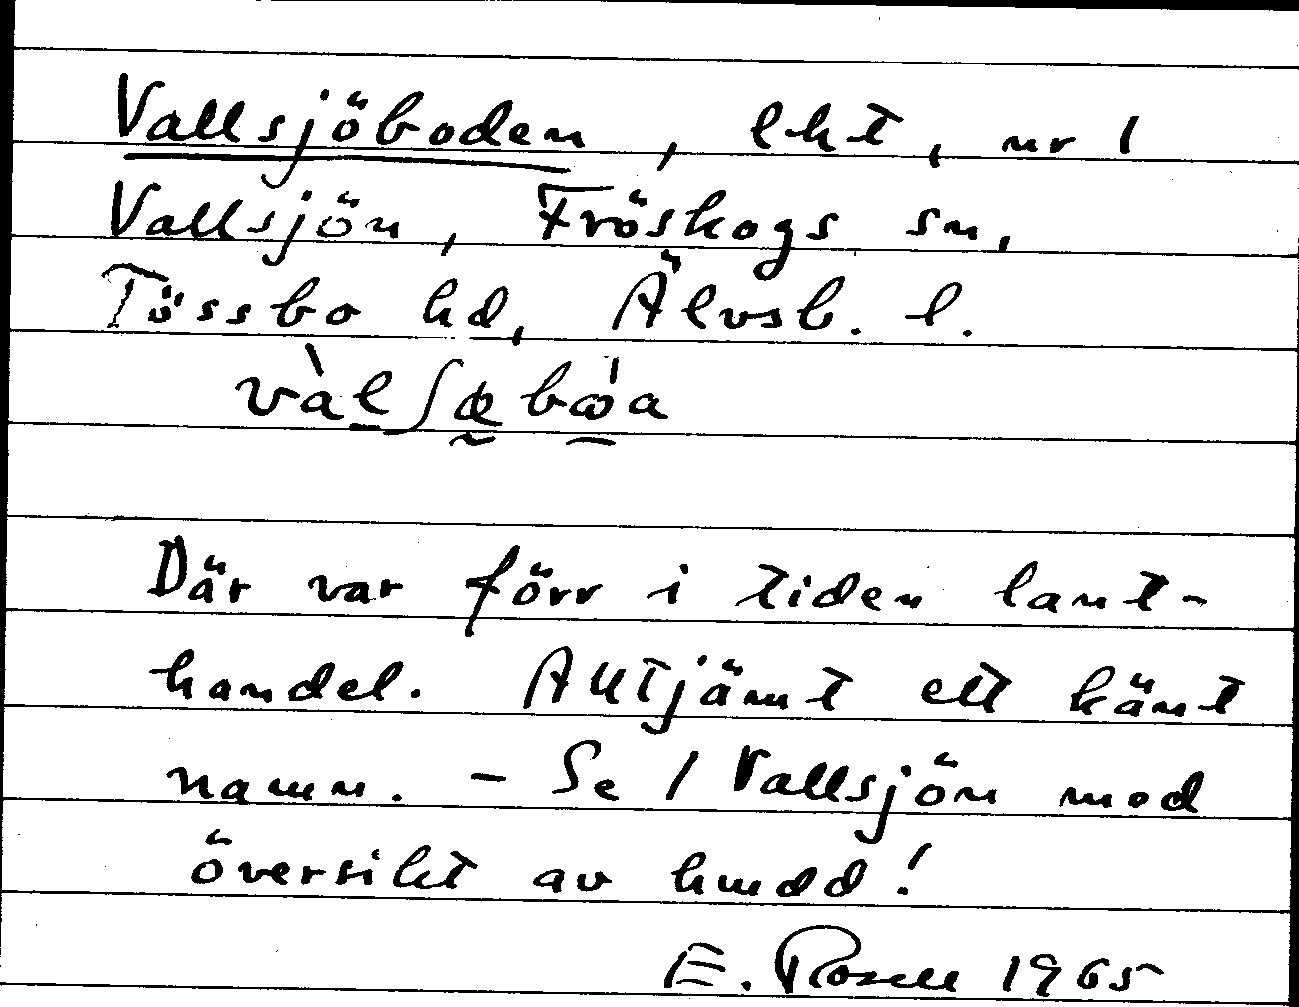 Vallsjöboden, lht, nr 1
Vallsjön, Fröskogs sn,
Tössbo hd, Älvsb. l.
Där var förr i tiden lant-
handel. Alltjämt ett känt
namn. - Se 1 Vallsjön med
översikt av hmdd!
E. Rosell 1965